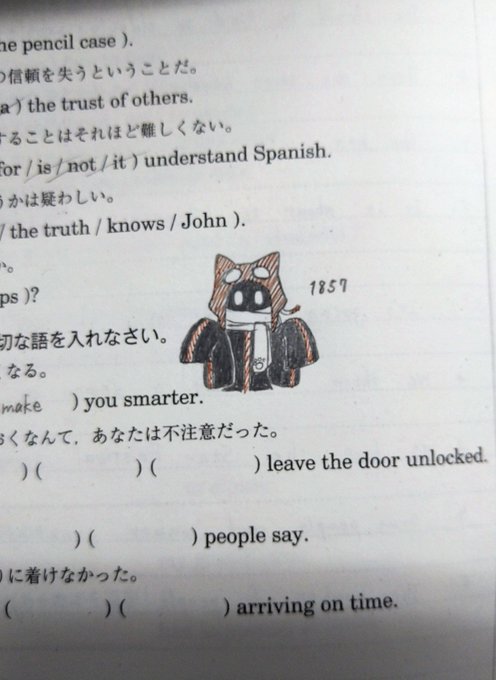 he pencil case ).
の信頼を失うということだ。
a ) the trust of others.
することはそれほど難しくない。
for / is / not / it ) understand Spanish.
うかは疑わしい。
/ the truth / knows / John ).
か。
ps )?
1857
切な語を入れなさい。
くなる。
make ) you smarter.
おくなんて，あなたは不注意だった。
) ( ) ( ) leave the door unlocked.
) ( ) people say.
) に着けなかった。
( ) ( ) arriving on time.